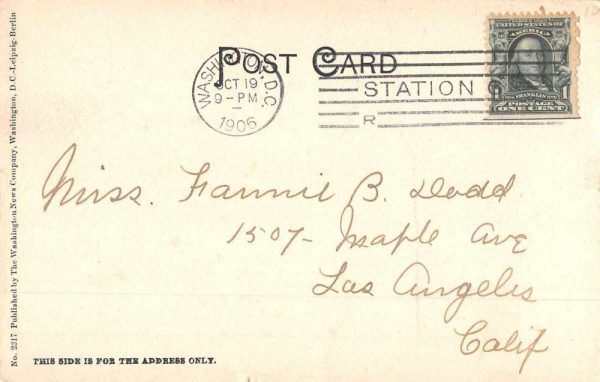 POST CARD
WASHINGTON, D.C.
OCT 19
9-PM
1906
STATION
R
UNITED STATES OF
FRANKLIN
POSTAGE
ONE CENT
1
Miss. Fannie B. Dodd
1507- Maple Ave
Los Angeles
Calif
THIS SIDE IS FOR THE ADDRESS ONLY.
No. 2217 Published by The Washington News Company, Washington, D.C.-Leipzig-Berlin